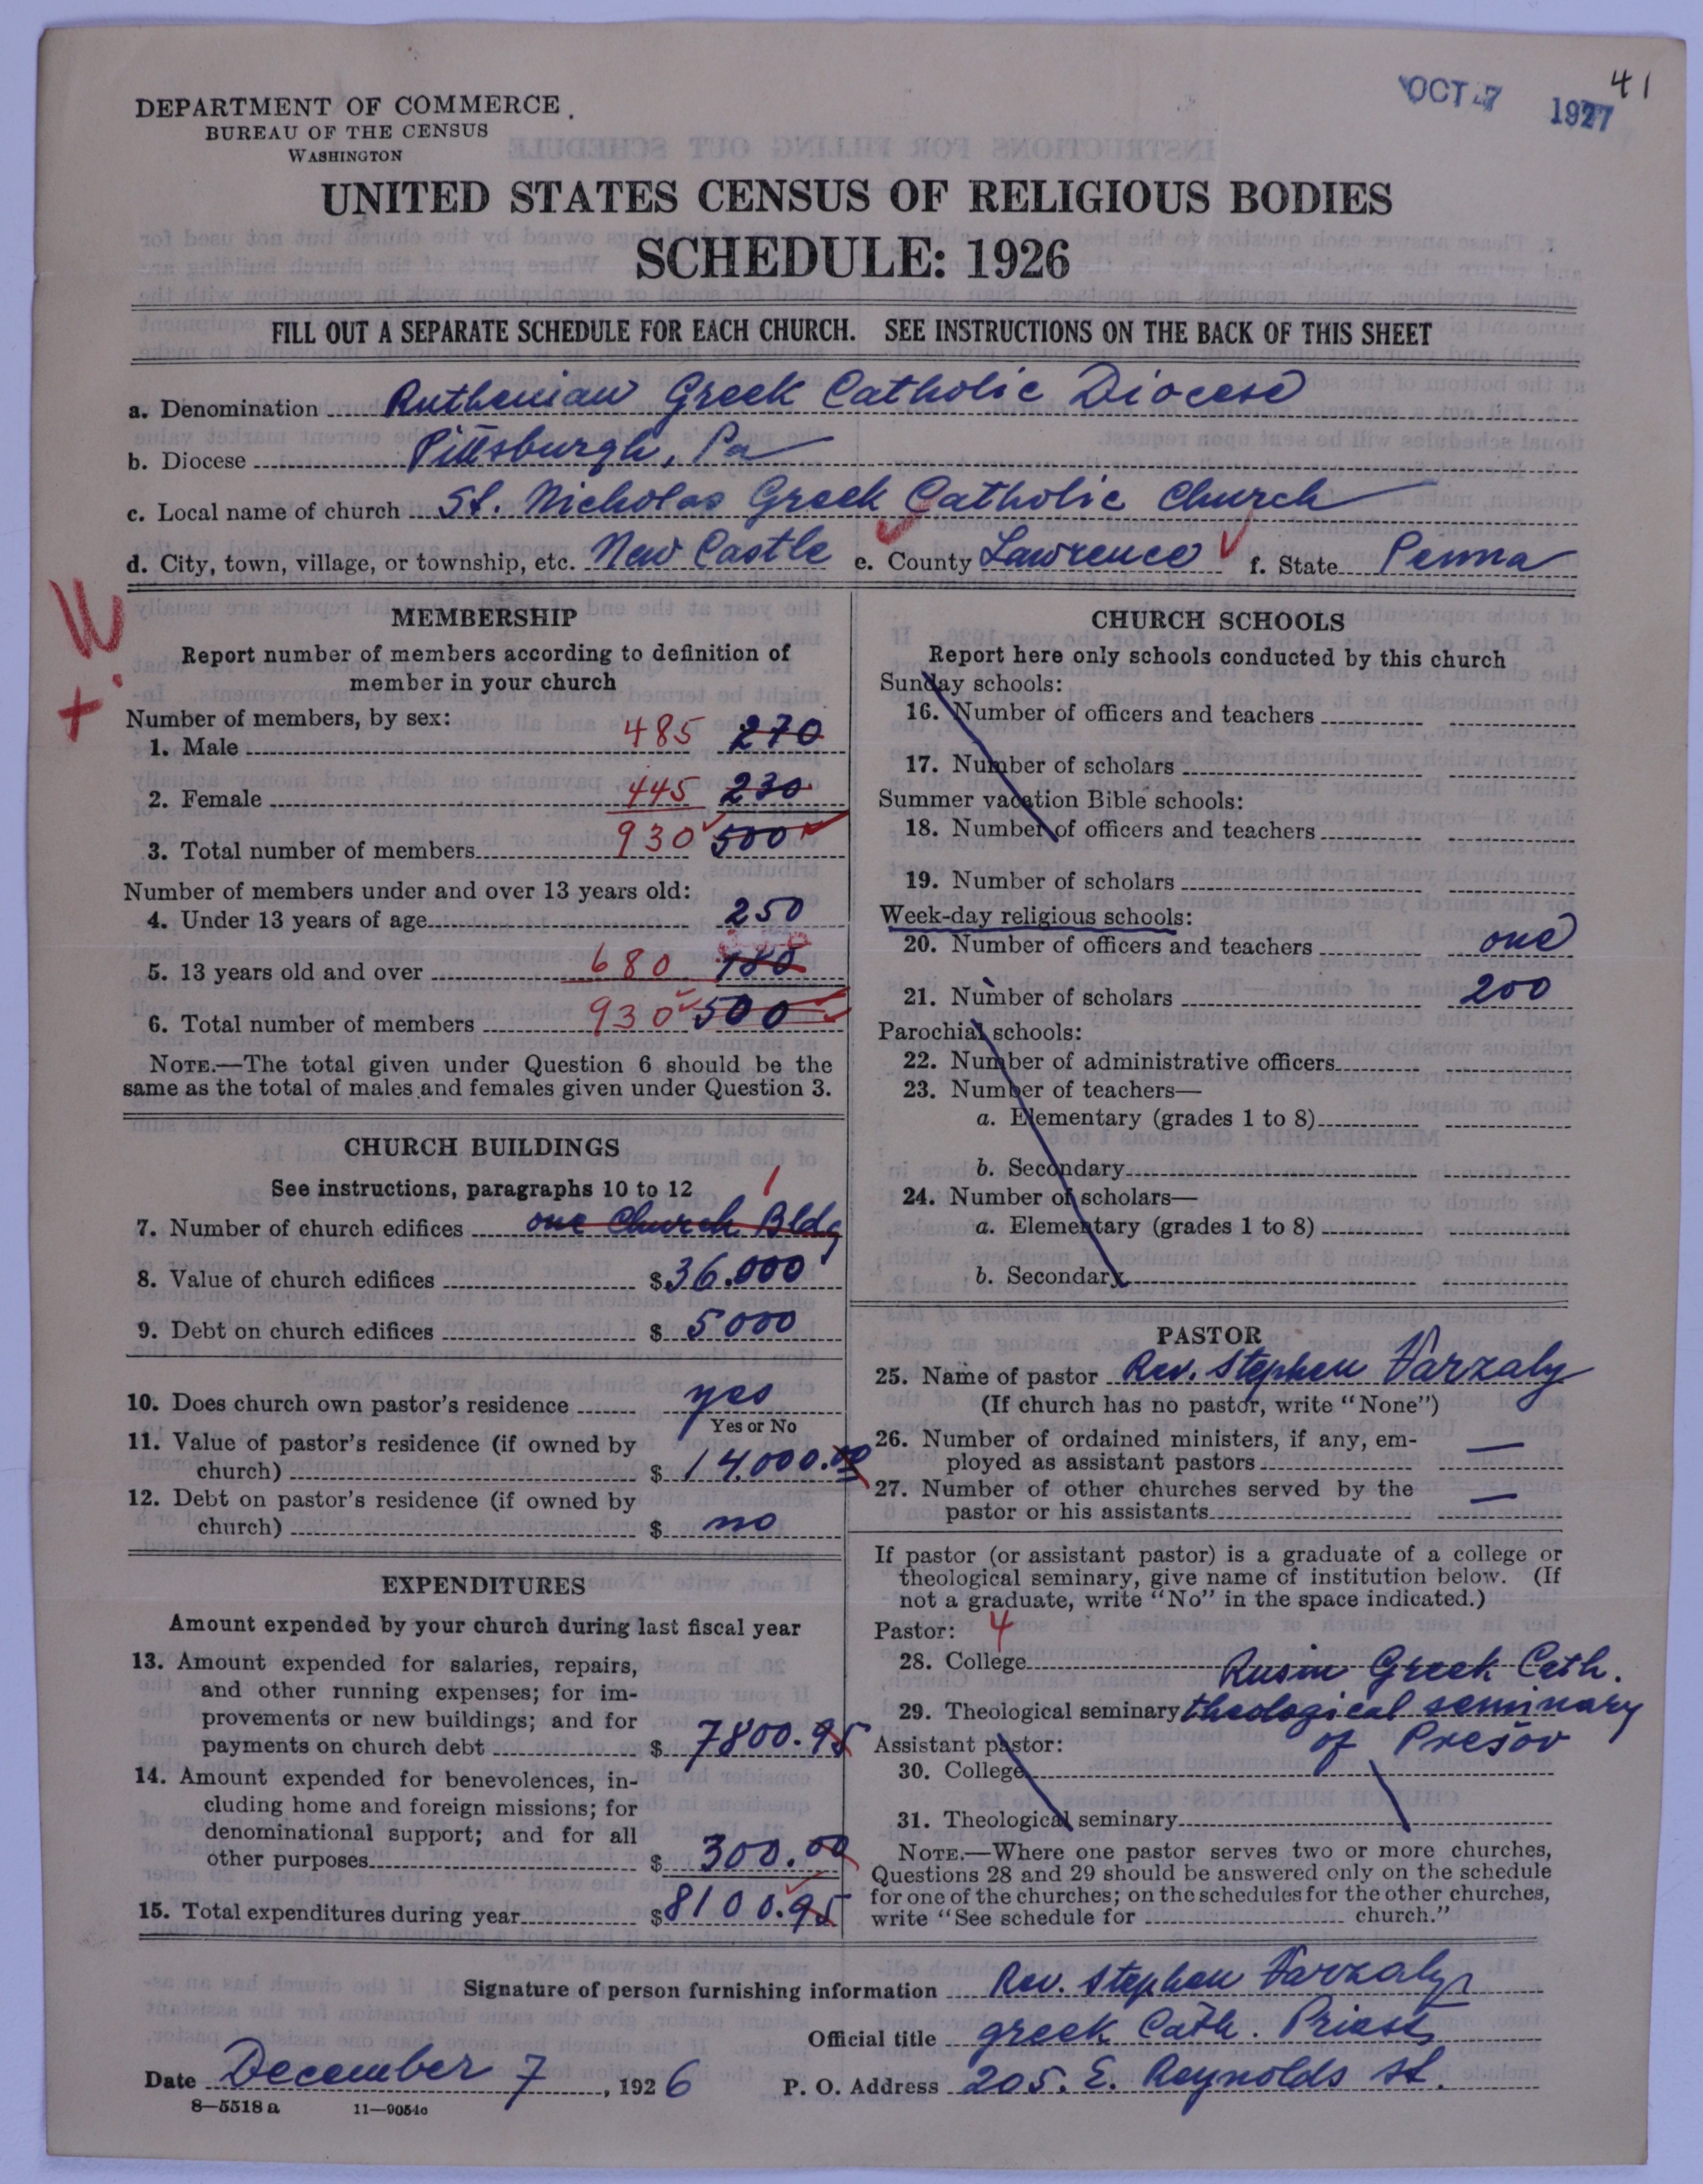 OCT 7 1927
41
DEPARTMENT OF COMMERCE
BUREAU OF THE CENSUS
WASHINGTON
UNITED STATES CENSUS OF RELIGIOUS BODIES
SCHEDULE: 1926
FILL OUT A SEPARATE SCHEDULE FOR EACH CHURCH. SEE INSTRUCTIONS ON THE BACK OF THIS SHEET
a. Denomination Ruthenian Greek Catholic Diocese
b. Diocese Pittsburgh, Pa
c. Local name of church St. Nicholas Greek Catholic Church
d. City, town, village, or township, etc. New Castle e. County Lawrence f. State Penna
MEMBERSHIP
Report number of members according to definition of
member in your church
Number of members, by sex:
1. Male 485 270
2. Female 445 230
3. Total number of members 930 500
Number of members under and over 13 years old:
4. Under 13 years of age 250
5. 13 years old and over 680 180
6. Total number of members 930 500
NOTE.—The total given under Question 6 should be the
same as the total of males and females given under Question 3.
CHURCH BUILDINGS
See instructions, paragraphs 10 to 12
1
7. Number of church edifices one Church Bldg
8. Value of church edifices $36.000
9. Debt on church edifices $ 5000
10. Does church own pastor's residence yes
Yes or No
11. Value of pastor's residence (if owned by
church) $ 14,000.00
12. Debt on pastor's residence (if owned by
church) $ no
EXPENDITURES
Amount expended by your church during last fiscal year
13. Amount expended for salaries, repairs,
and other running expenses; for im-
provements or new buildings; and for
payments on church debt $ 7800.95
14. Amount expended for benevolences, in-
cluding home and foreign missions; for
denominational support; and for all
other purposes $ 300.00
15. Total expenditures during year $8100.95
CHURCH SCHOOLS
Report here only schools conducted by this church
Sunday schools:
16. Number of officers and teachers
17. Number of scholars
Summer vacation Bible schools:
18. Number of officers and teachers
19. Number of scholars
Week-day religious schools:
20. Number of officers and teachers one
21. Number of scholars 200
Parochial schools:
22. Number of administrative officers
23. Number of teachers—
a. Elementary (grades 1 to 8)
b. Secondary
24. Number of scholars—
a. Elementary (grades 1 to 8)
b. Secondary
PASTOR
25. Name of pastor Rev. Stephen Varzaly
(If church has no pastor, write "None")
26. Number of ordained ministers, if any, em-
ployed as assistant pastors —
27. Number of other churches served by the
pastor or his assistants —
If pastor (or assistant pastor) is a graduate of a college or
theological seminary, give name of institution below. (If
not a graduate, write "No" in the space indicated.)
Pastor: 4
28. College Rusin Greek Cath.
29. Theological seminary theological seminary
Assistant pastor: of Prešov
30. College
31. Theological seminary
NOTE.—Where one pastor serves two or more churches,
Questions 28 and 29 should be answered only on the schedule
for one of the churches; on the schedules for the other churches,
write "See schedule for church."
Signature of person furnishing information Rev. Stephen Varzaly
Official title Greek Cath. Priest
Date December 7, 1926 P. O. Address 205. E. Reynolds St.
8—5518a 11—9054c